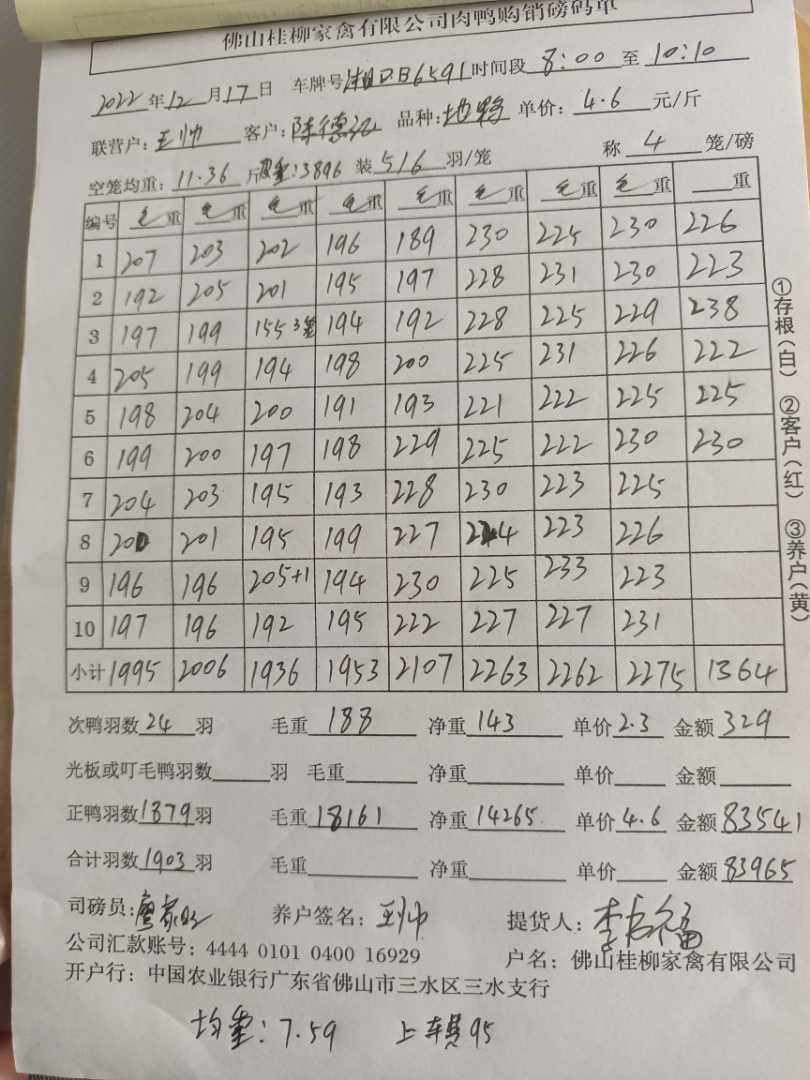 佛山桂柳家禽有限公司肉鸭购销磅码单
2022年12月17日 车牌号湘DB6591时间段8:00至10:10
联营户:王帅 客户:陈德记 品种:地特 单价:4.6元/斤
空笼均重:11.36斤 皮重:3896 装5/6羽/笼 称4笼/磅
编号 毛重 毛重 毛重 毛重 毛重 毛重 毛重 毛重 重
1 207 203 202 196 189 230 225 230 226
2 192 205 201 195 197 228 231 230 223
3 197 199 155 3笼 194 192 228 225 229 238
4 205 199 194 198 200 225 231 226 222
5 198 204 200 191 193 221 222 225 225
6 199 200 197 198 229 225 222 230 230
7 204 203 195 193 228 230 223 225
8 200 201 195 199 227 224 223 226
9 196 196 205+1 194 230 225 233 223
10 197 196 192 195 222 227 227 231
小计 1995 2006 1936 1953 2107 2263 2262 2275 1364
次鸭羽数24羽 毛重188 净重143 单价2.3 金额329
光板或叮毛鸭羽数 羽 毛重 净重 单价 金额
正鸭羽数1879羽 毛重18161 净重14265 单价4.6 金额83541
合计羽数1903羽 毛重 净重 单价 金额83965
司磅员: 养户签名:王帅 提货人:
公司汇款账号:4444 0101 0400 16929 户名:佛山桂柳家禽有限公司
开户行:中国农业银行广东省佛山市三水区三水支行
均重:7.59 上车费95
①存根(白) ②客户(红) ③养户(黄)